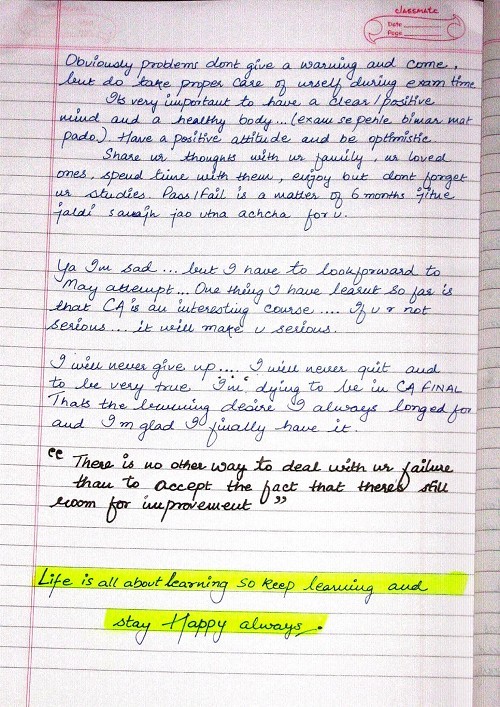 classmate
Date
Page
Obviously problems dont give a warning and come,
but do take proper care of urself during exam time
Its very important to have a clear/positive
mind and a healthy body...(exam se pehle bimar mat
pado). Have a positive attitude and be optimistic.
Share ur thoughts with ur family, ur loved
ones, spend time with them, enjoy but dont forget
ur studies. Pass/Fail is a matter of 6 months jitne
jaldi samajh jao utna achcha for u.
Ya I'm sad.... but I have to lookforward to
May attempt... One thing I have learnt so far is
that CA is an interesting course.... If u r not
serious.... it will make u serious.
I will never give up.... I will never quit and
to be very true I'm dying to be in CA FINAL
Thats the burning desire I always longed for
and I'm glad I finally have it.
“ There is no other way to deal with ur failure
than to accept the fact that there's still
room for improvement ”
Life is all about learning so keep learning and
stay Happy always.